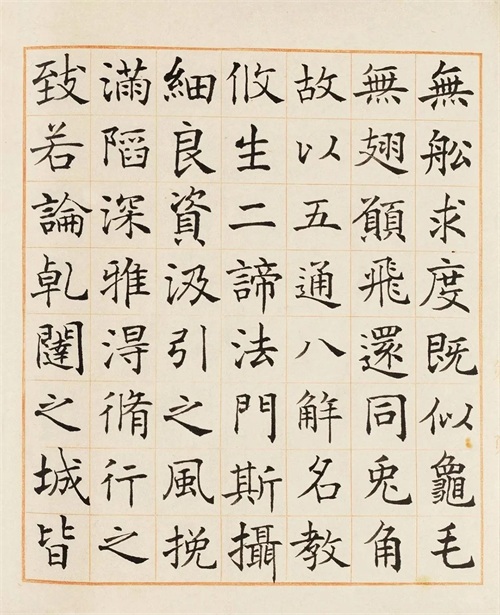 無舩求度既似龜毛
無翅願飛還同兎角
故以五通八解名教
攸生二諦法門斯攝
細良資汲引之風挽
滿陷深雅淂脩行之
致若論乹闥之城皆